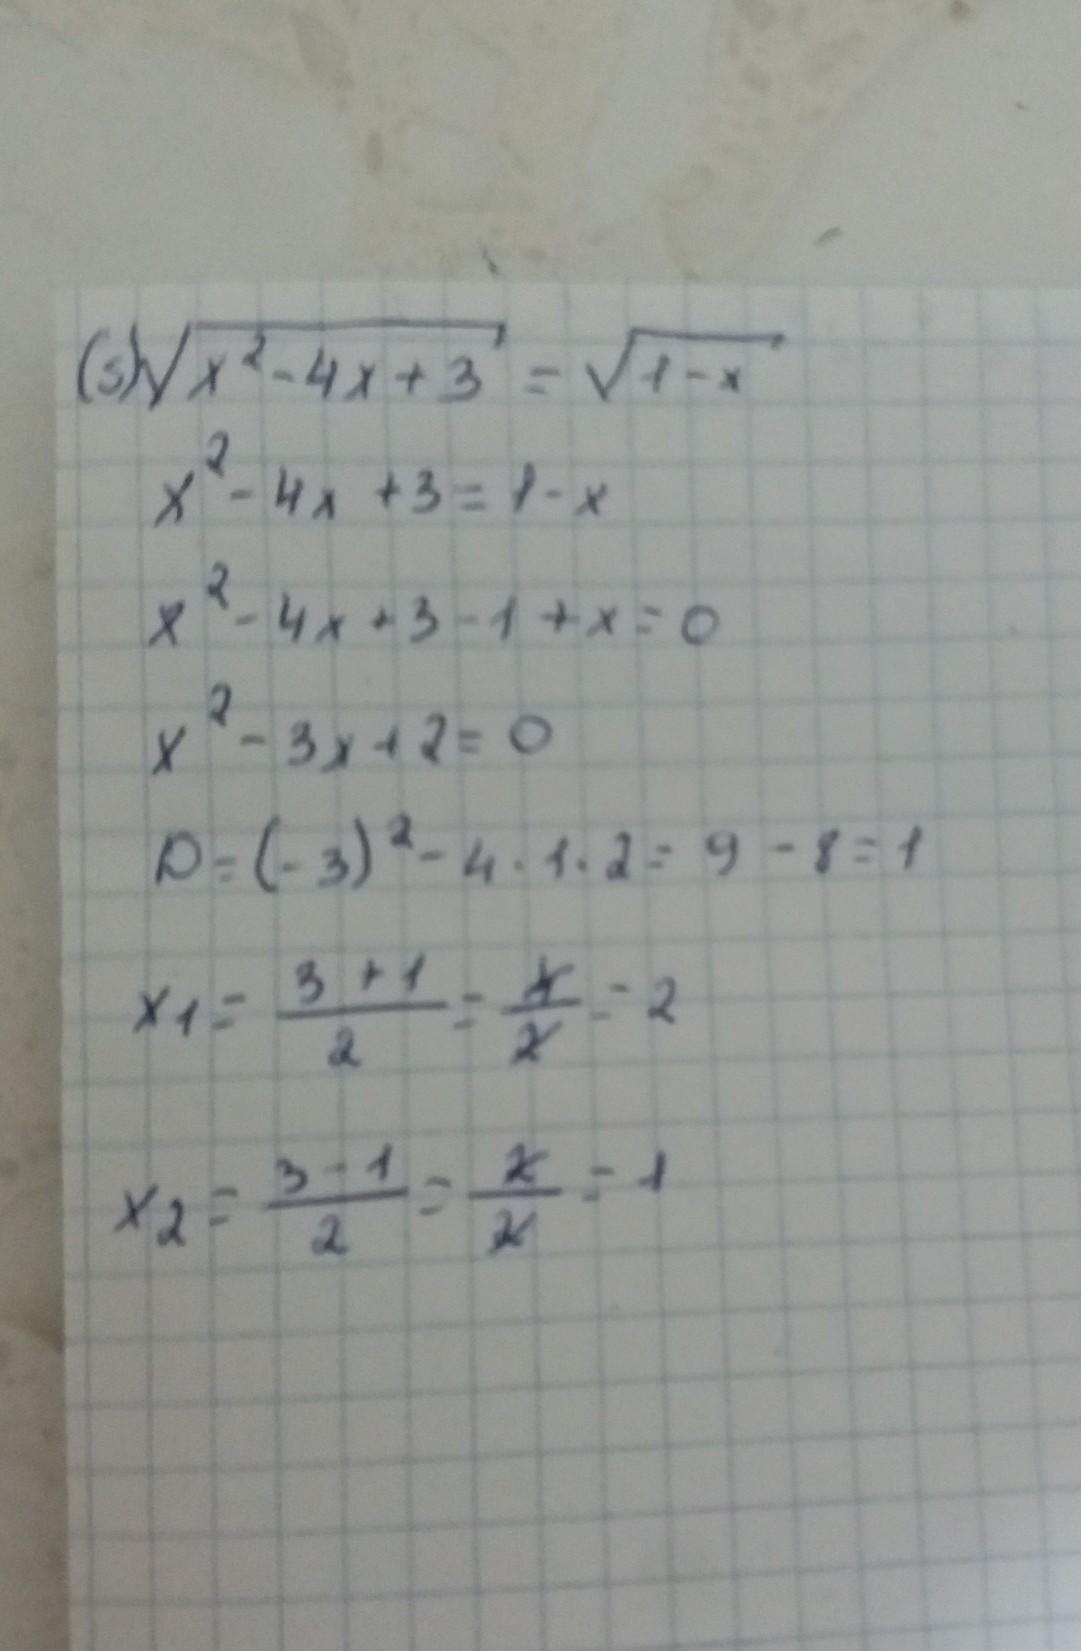 (5) √(x² - 4x + 3) = √(1 - x)
x² - 4x + 3 = 1 - x
x² - 4x + 3 - 1 + x = 0
x² - 3x + 2 = 0
D = (-3)² - 4 · 1 · 2 = 9 - 8 = 1
x₁ = (3 + 1)/2 = 4/2 = 2
x₂ = (3 - 1)/2 = 2/2 = 1